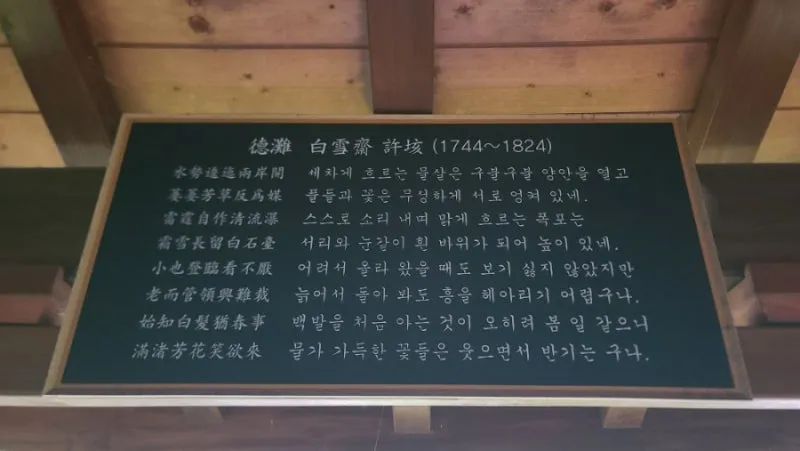 德灘 白雪齋 許垓 (1744~1824)
水勢逶迤兩岸開 세차게 흐르는 물살은 구불구불 양안을 열고
萋萋芳草反爲媒 풀들과 꽃은 무성하게 서로 엉켜 있네.
雷霆自作淸流瀑 스스로 소리 내며 맑게 흐르는 폭포는
霜雪長留白石臺 서리와 눈같이 흰 바위가 되어 높이 있네.
小也登臨看不厭 어려서 올라 왔을 때도 보기 싫지 않았지만
老而管領興難裁 늙어서 돌아 봐도 흥을 헤아리기 어렵구나.
始知白髮猶春事 백발을 처음 아는 것이 오히려 봄 일 같으니
滿渚芳花笑欲來 물가 가득한 꽃들은 웃으면서 반기는 구나.